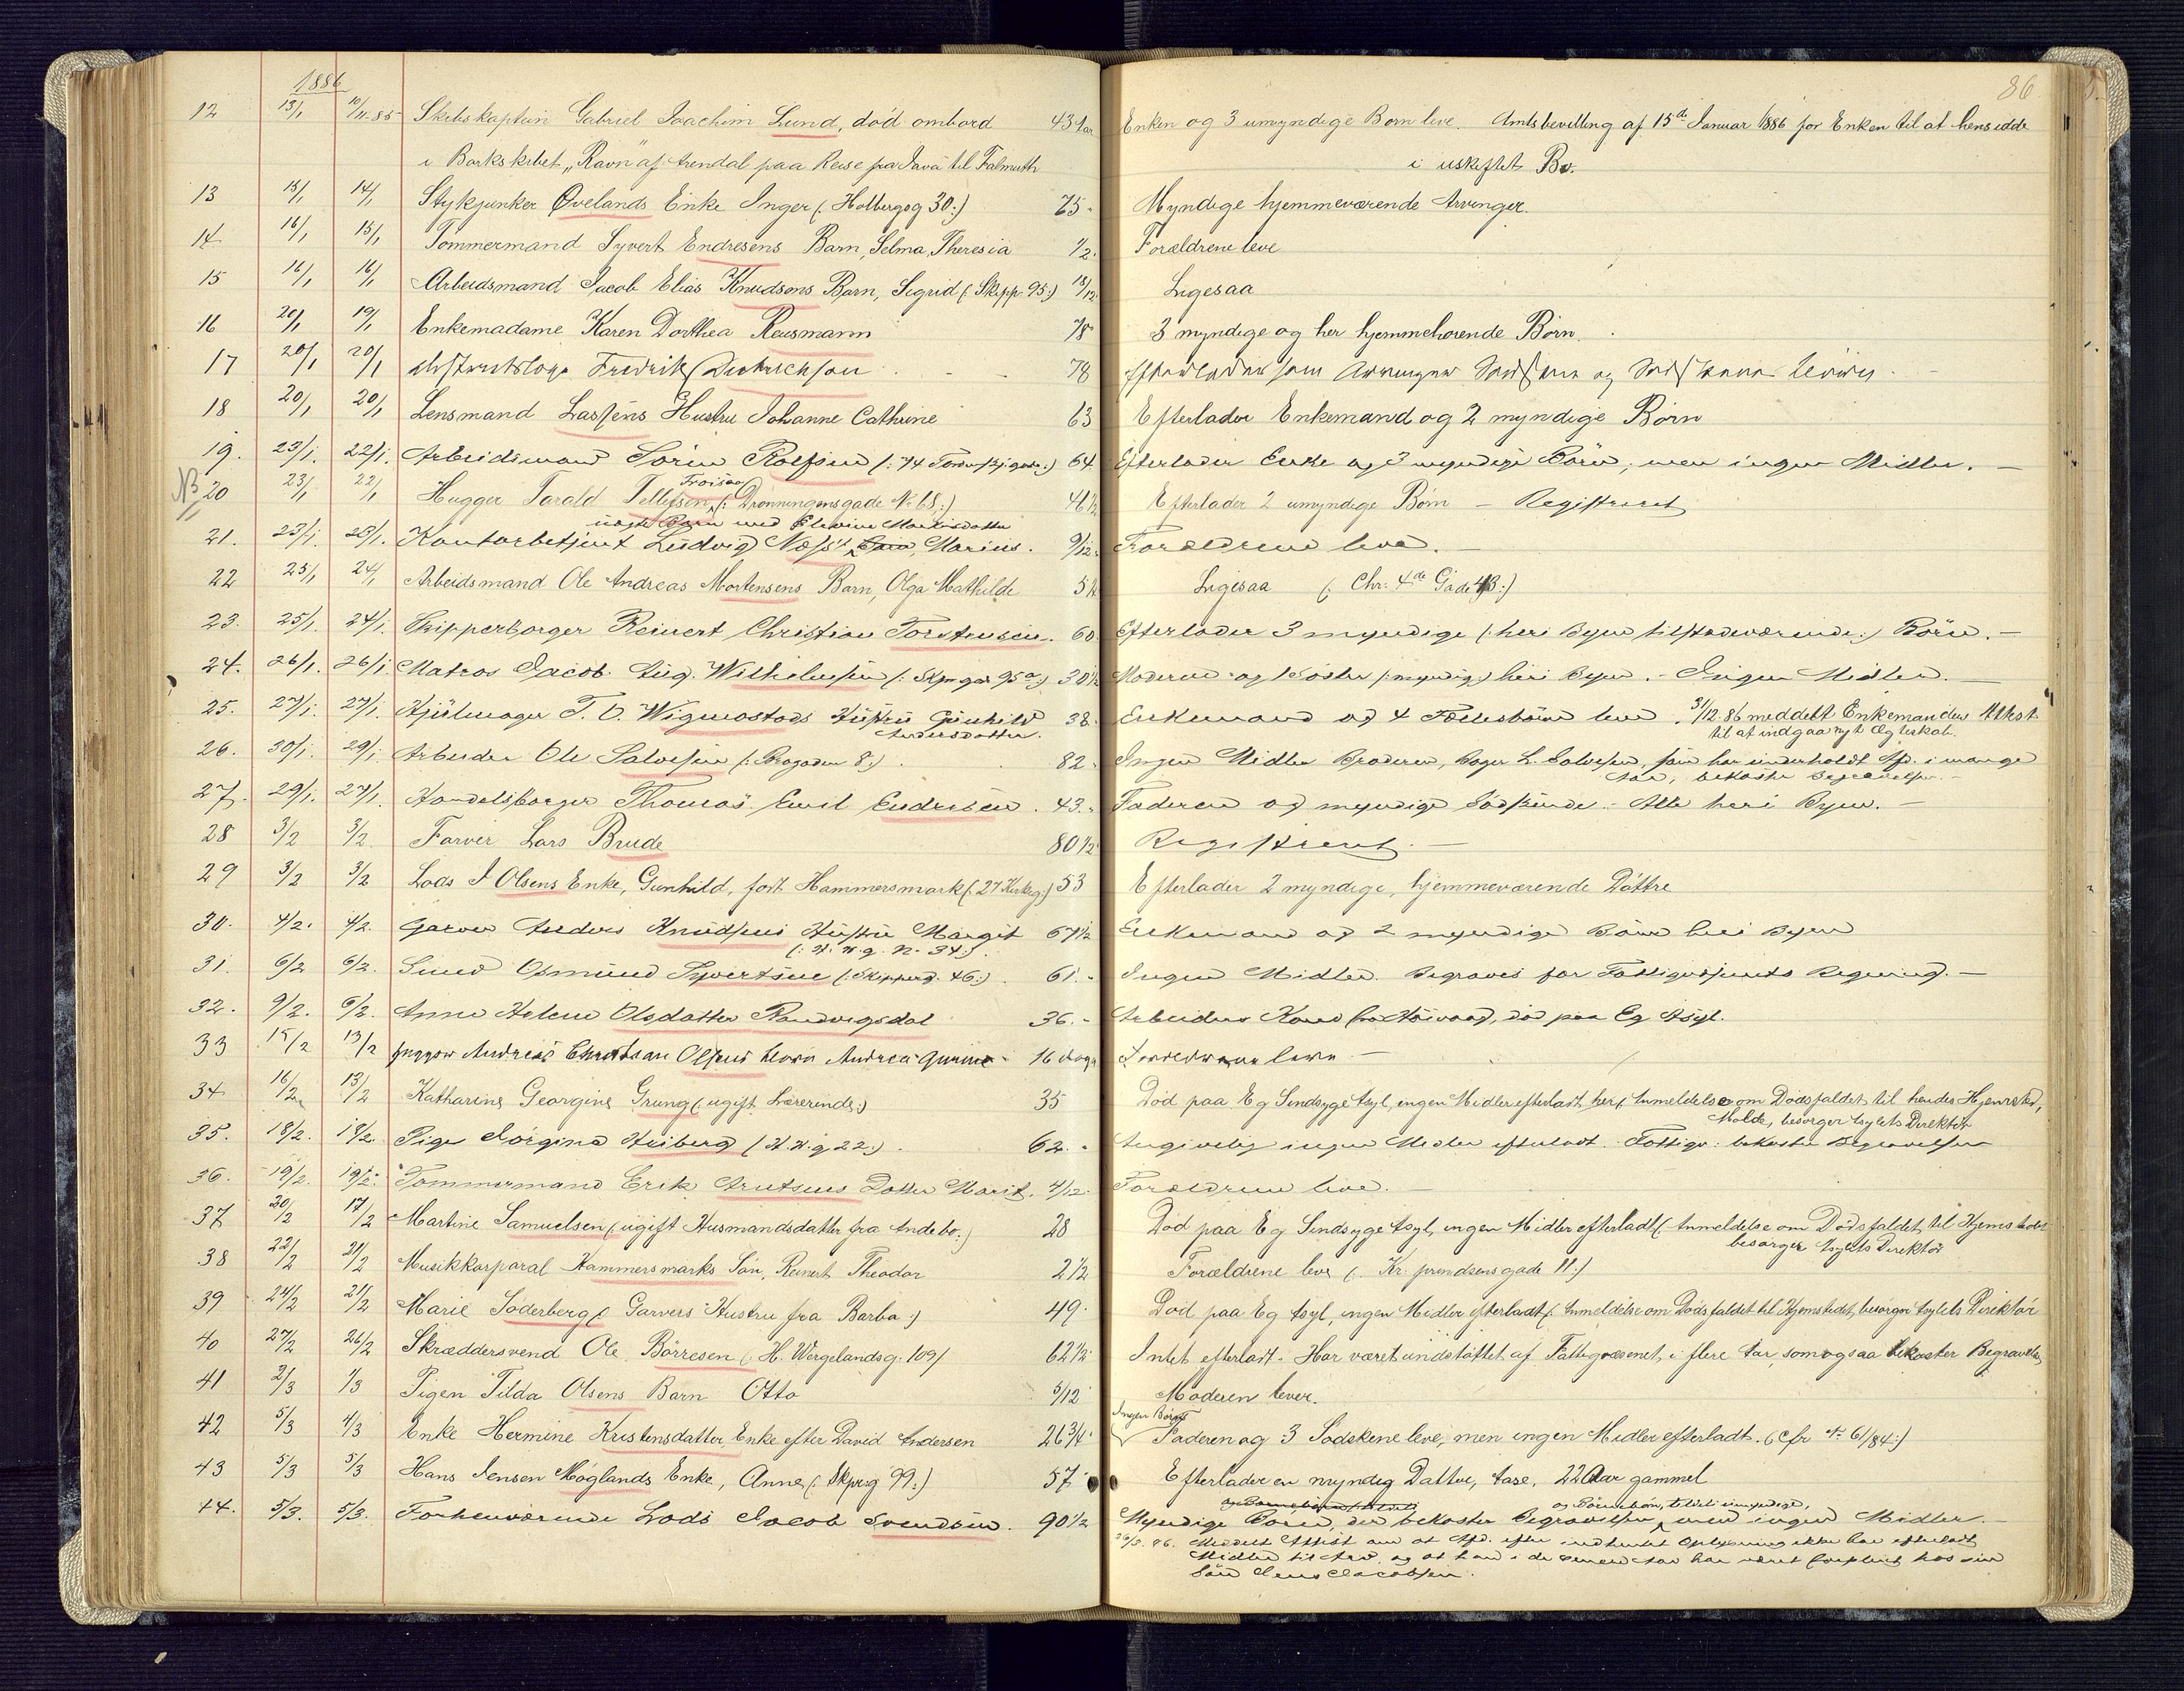 1886
86
12 13/1 10/11.85 Skibskaptein Gabriel Joachim Lund, död ombord 43 Aar Enken og 3 umyndige Børn leve. Amtsbevilling af 15de Januar 1886 for Enken til at hensidde
i Barkskibet "Ravn" af Arendal paa Reise fra Java til Falmuth i uskiftet Bo.
13 15/1 14/1 Stykjunker Øvelands Enke Inger (: Holbergsg 30:) 75 Myndige hjemmeværende Arvinger.
14 16/1 15/1 Tömmermand Syvert Endresens Barn, Selma Theresia 1/2 Forældrene leve
15 16/1 16/1 Arbeidsmand Jacob Elias Knudsens Barn, Sigrid (: Skipp. 95:) Ligesaa
16 20/1 19/1 Enkemadame Karen Dorthea Reusmann 78 3 myndige og her hjemmehørende Börn.
17 20/1 20/1 Fredrik 78 Efterlader som Arvinger og
18 20/1 20/1 Lensmand Lassens Hustru Johanne Cathrine 63 Efterlader Enkemand og 2 myndige Børn
19. 23/1. 22/1. Arbeidsmand Sören Rolfsen 64 Efterlader Enke og 3 myndige Børn, men ingen Midler. —
NB 20 23/1 22/1 Hugger Tarald Tellefsen Froisaa (: Dronningensgade No 68:) 41 1/2 Efterlader 2 umyndige Børn — Registreret
uægte Barn med Elevine Martinsdatter
21. 23/1. 23/1. Kontorbetjent Ludvig Næss's Marius. 9/12 Forældrene leve. —
22 25/1 24/1 Arbeidsmand Ole Andreas Mortensens Barn, Olga Mathilde 5 1/2 Ligesaa (: Chr: 4de Gade 43:)
23. 25/1. 24/1. Skipperborger Reinert Christian Torstensen. 60 Efterlader 3 myndige (: heri Byen tilstedeværende:) Børn. —
24. 26/1. 26/1. Matros Jacob Aug. Wilhelmsen (: Skpr gd 95a:) 30 1/2 Moderen og Söster (: myndig:) heri Byen. - Ingen Midler. —
25. 27/1. 27/1. Hjulmager T. O. Wigmostads Hustru Gunhild 38 Enkemand og 4 Fællesbørn leve. 31/12.86 meddelt Enkemanden Attest
Andersdatter. til at indgaa nyt Ægteskab.
26. 30/1. 29/1. Arbeider Ole Salvesen (: Brogaden 8:) 82 Ingen Midler Broderen, Bager L. Salvesen, som har underholdt Afd. i mange
Aar, bekoster Begravelsen. —
27. 29/1. 27/1. Handelsborger Thomas Emil Endresen. 43. Faderen og myndige Södskende. - Alle heri Byen. —
28 3/2 3/2 Farver Lars Brude 80 1/2 Registreret. —
29 3/2 3/2 Lods J Olsens Enke, Gunhild, født Hammersmark (: 27 Kirkeg:) 53 Efterlader 2 myndige, hjemmeværende Døttre
30. 4/2. 4/2. Garver Anders Knudsens Hustru Margit 67 1/2 Enkemand og 2 myndige Børn heri Byen
(: H. W. g. No 34:).
31. 6/2 6/2. Smed Osmund Syvertsen (: Skipperg. 46:). 61. Ingen Midler. Begraves for Fattigvæsenets Regning. —
32. 9/2. 6/2. Anne Helene Olsdatter Randvigsdal 36. - Arbeiders Kone fra død paa Eg Asyl.
33 15/2 13/2 Andreas Christian Olsens Andrea Gunine 16 dage Forældrene leve —
34 16/2 13/2 Katharine Georgine Grung (: ugift Lærerinde:) 35 Död paa Eg Sindsyge Asyl, ingen Midler efterladt her (: Anmeldelse om Dødsfaldet til hendes Hjemsted,
Molde, besørger Asylets Direktör
35. 18/2. 18/2. Pige Jörgine Heiberg (: H. W. g 22:). 62. - Angivelig ingen Midler efterladt. Fattigv: bekoster Begravelsen
36. 19/2. 19/2. Tommermand Erik Arntsens Datter Marit. 4/12. Forældrene leve. —
37 20/2 17/2 Martine Samuelsen (: ugift Husmandsdatter fra Andebo:) 28 Död paa Eg Sindsyge Asyl, ingen Midler efterladt (: Anmeldelse om Dødsfaldet til Hjemstedet
besørger Asylets Direktör
38 22/2 21/2 Musikkorporal Hammersmarks Sön, Reinert Theodor 2 1/2 Forældrene leve (: Kr. prindsensgade 11:)
39 24/2 21/2 Marie Söderberg (: Garvers Hustru fra Barbo:) 49 Död paa Eg Asyl, ingen Midler efterladt (: Anmeldelse om Dødsfaldet til Hjemstedet, besørger Asylets Direktör
40 27/2 26/2 Skræddersvend Ole Börresen (: H. Wergelandsg. 109/ 62 1/2 Intet efterladt. Har været understøttet af Fattigvæsenet, i flere Aar, som ogsaa bekoster Begravelsen
41 2/3 1/3 Pigen Tilda Olsens Barn Otto 5/12 Moderen lever.
Ingen Børn
42 5/3 4/3 Enke Hermine Kristensdatter, Enke efter David Andersen 26 3/4 Faderen og 3 Sødskene leve, men ingen Midler efterladt. (cfr No 61/84:)
43 5/3 5/3 Hans Jensen Möglands Enke, Anne (: Skprg 99:) 57 Efterlader en myndig Datter, Aase, 22 Aar gammel
og Børnebørn, tildels umyndige,
44. 5/3. 5/3. Forhenværende Lods Jacob Svendsen. 90 1/2 Myndige Børn, der bekoster Begravelsen, men ingen Midler. —
26/3. 86. Meddelt Attest om at Afd. efter indhentet Oplysning ikke har efterladt
Midler til Arv, og at han i de senere Aar har været forpleiet hos sin
Sön Jens Jacobsen.